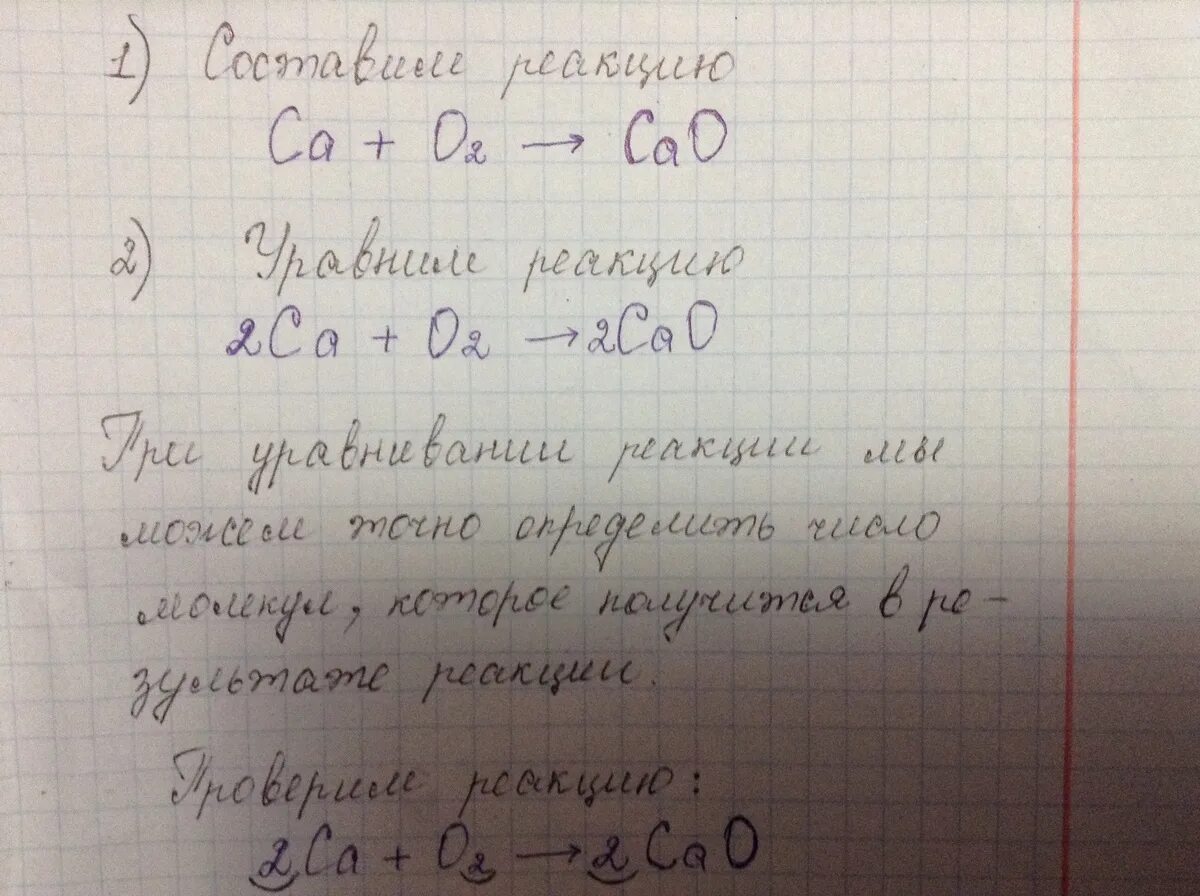 1) Составим реакцию
Ca + O₂ → CaO
2) Уравним реакцию
2Ca + O₂ → 2CaO
При уравнивании реакции мы
можем точно определить число
молекул, которое получится в ре-
зультате реакции.
Проверим реакцию:
2Ca + O₂ → 2CaO